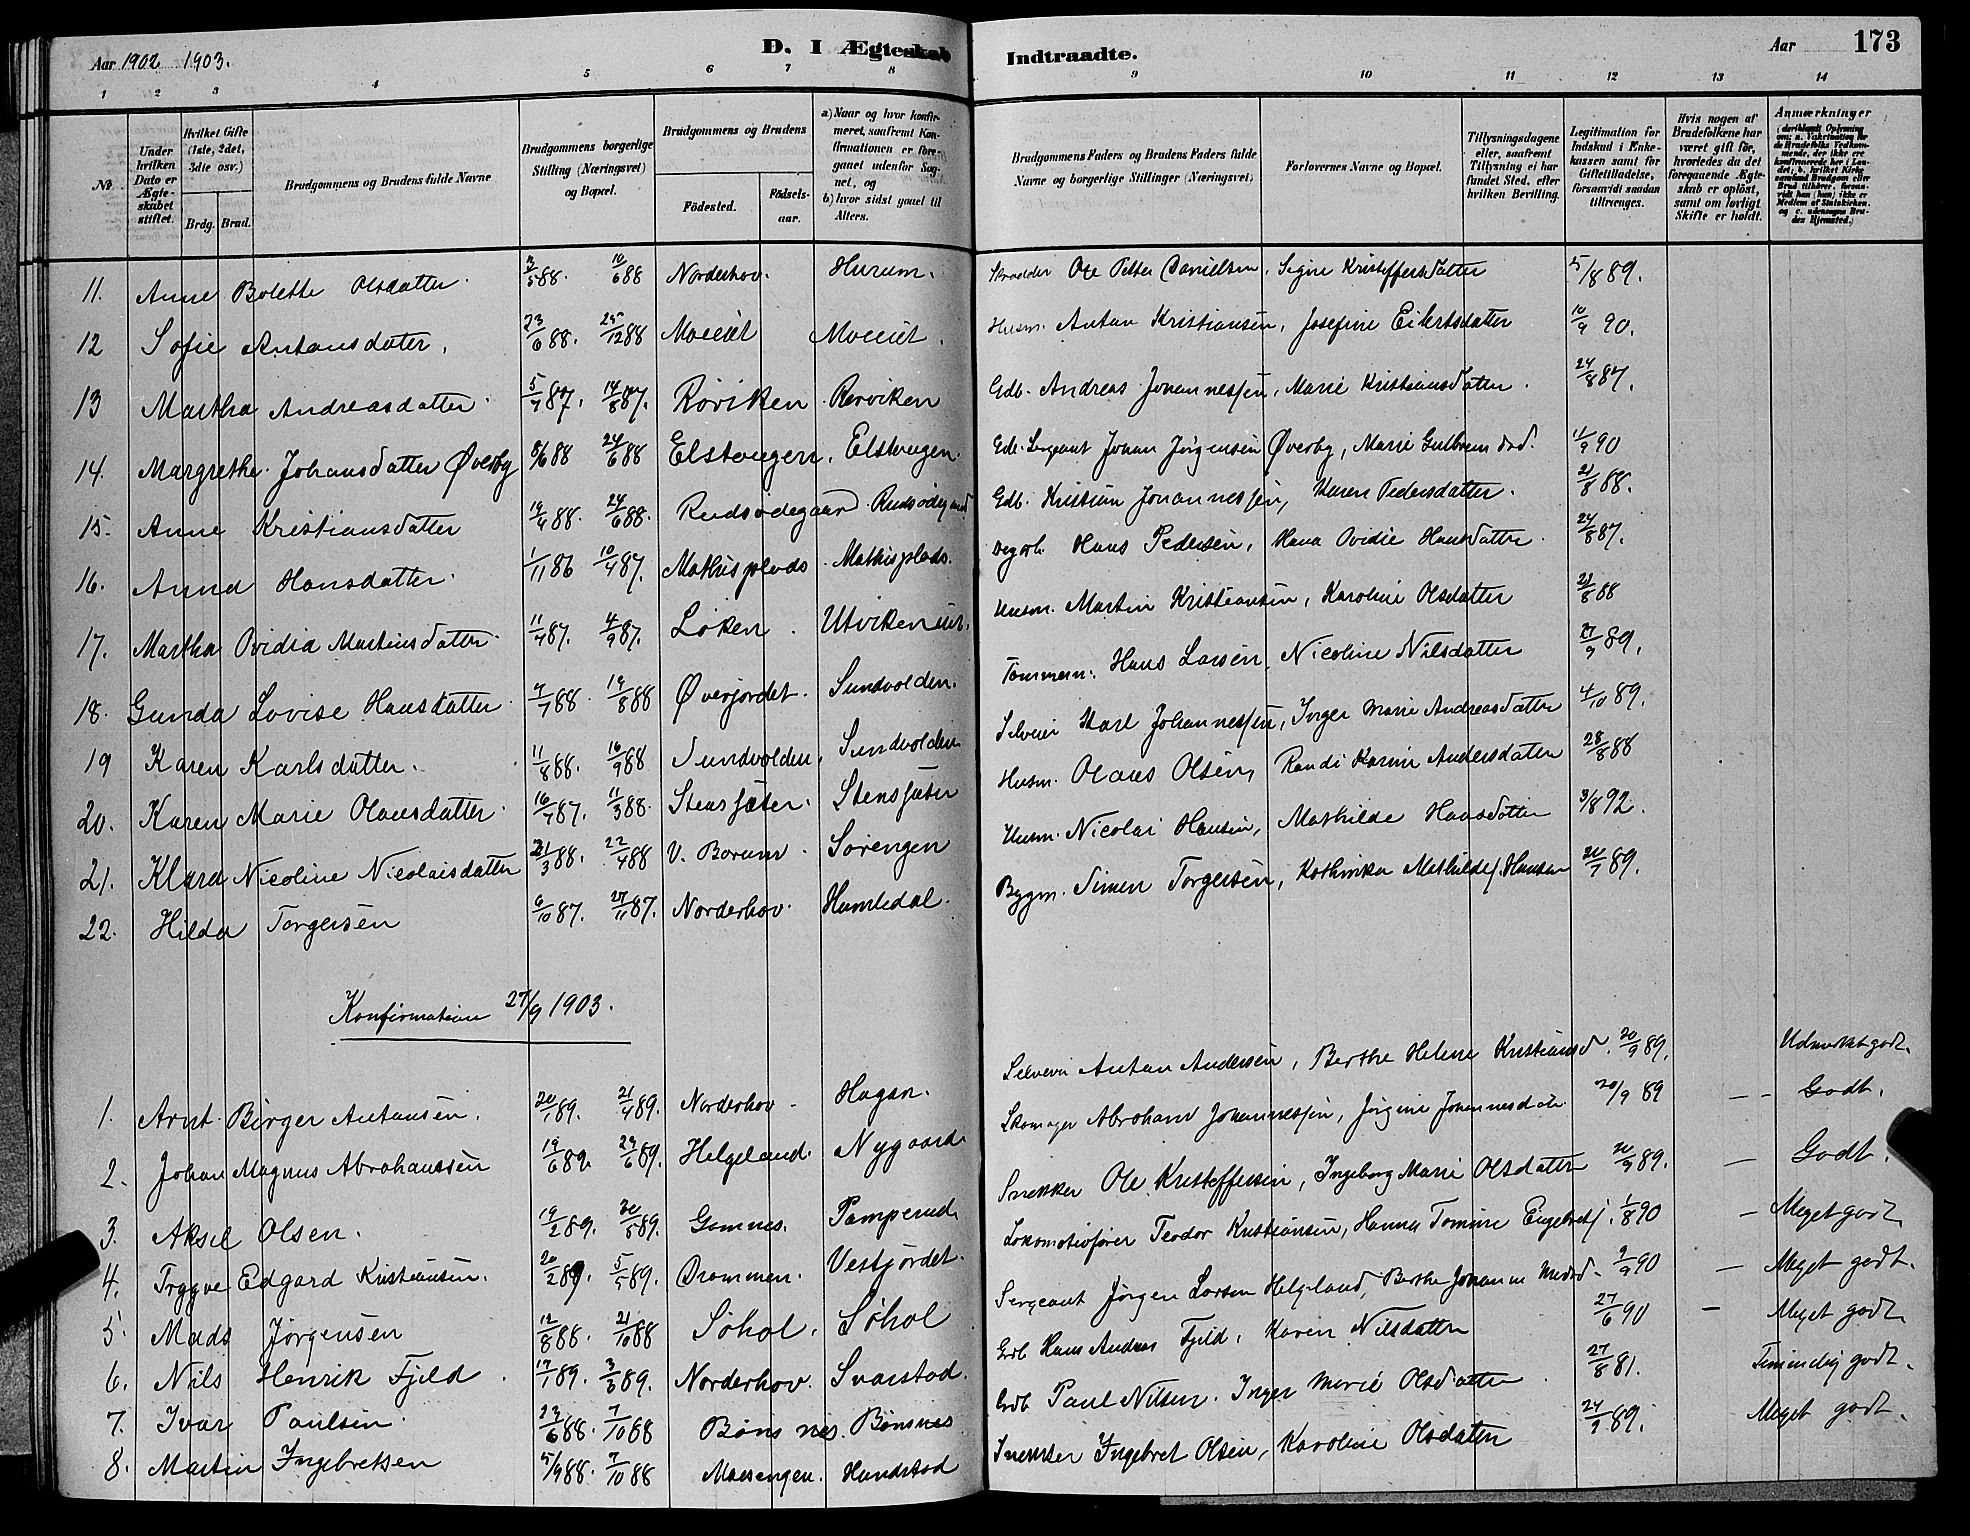 Aar 1902 1903.
D. I Ægteskab Indtraadte.
Aar 173
1 2 3 4 5 6 7 8 9 10 11 12 13 14
No.
Under hvilken Dato er Ægteskabet stiftet.
Hvilket Gifte (1ste, 2det, 3die osv.)
Brdg. Brud.
Brudgommens og Brudens fulde Navne
Brudgommens borgerlige Stilling (Næringsvei) og Bopæl.
Brudgommens og Brudens
Fødested. Fødselsaar.
a) Naar og hvor konfirmeret, saafremt Konfirmationen er foregaaet udenfor Sognet, og
b) hvor sidst gaaet til Alters.
Brudgommens Faders og Brudens Faders fulde Navne og borgerlige Stillinger (Næringsvei)
Forlovernes Navne og Bopæl.
Tillysningsdagene eller, saafremt Tillysning ei har fundet Sted, efter hvilken Bevilling.
Legitimation for Indskud i Enkekassen samt for Giftetilladelse, forsaavidt saadan tiltrænges.
Hvis nogen af Brudefolkene har været gift før, hvorledes da det foregaaende Ægteskab er opløst, samt om lovligt Skifte er holdt.
Anmærkninger
11. Anne Bolette Olsdatter. 3/5 88. 10/6 88 Norderhov. Hurum. Skrædder Ole Petter Danielsen, Signe Kristoffersdatter 5/8 89.
12 Sofie Antonsdatter. 23/6 88. 25/12 88 Moeiet Moeiet. Husm. Anton Kristiansen, Josefine Eilertsdatter 10/9 90.
13 Martha Andreasdatter. 5/7 87. 14/8 87. Røviken Rørviken Gdb. Andreas Johannessen, Marie Kristiansdatter. 24/8 87.
14. Margrethe Johansdatter Øverby 8/6 88 24/6 88 Elstangen, Elstangen. Gdb. Sergeant Johan Jørgensen Øverby, Marie Gulbrandsd. 11/9 90
15. Anne Kristiansdatter 14/4 88. 24/6 88. Rudsødegaard Rudsødegaard Gdb. Kristian Johannessen, Karen Pedersdatter. 21/8 88.
16. Anna Hansdatter. 1/11 86 10/4 87. Mathisplads. Mathisplads. Dagarb. Hans Pedersen, Hana Ovidie Hansdatter. 24/8 87.
17. Martha Ovidia Martinsdatter. 11/7 87. 4/9 87. Løken. Utviken Husm. Martin Kristiansen, Karoline Olsdatter 21/8 88
18. Gunda Lovise Hansdatter. 4/7 88. 19/8 88 Øverjordet. Sundvolden. Tømmerm. Hans Larsen, Nicoline Nilsdatter 27/9 89.
19 Karen Karlsdatter. 11/8 88. 16/9 88 Sundvolden. Sundvolden Selveier Karl Johannessen, Inger Marie Andreasdatter 4/10 89.
20. Karen Marie Olausdatter. 16/7 87. 11/3 88. Stensjæter. Stensjæter Husm. Olaus Olsen, Randi Karine Andersdatter 28/8 88
21. Klara Nicoline Nicolaisdatter 21/3 88. 22/4 88 V. Borum. Sørengen Husm. Nicolai Hansen, Mathilde Hansdatter 3/8 92.
22. Hilda Torgersen 6/10 87. 27/11 87. Norderhov. Humledal. Bygm. Simen Torgersen, Kathinka Mathilde f. Hansen 20/7 89.
Konfirmation 27/9 1903.
1. Arnt Birger Antonsen. 20/1 89. 21/4 89. Norderhov. Hagen. Selveier Anton Andersen, Berthe Helene Kristiansd. 20/9 89. Udmerket godt.
2. Johan Magnus Abrahamsen 19/6 89. 29/6 89. Helgeland. Nygaard. Skomager Abraham Johannessen, Jørgine Johannesdatr. 20/9 89 — Godt.
3. Aksel Olsen. 19/2 89. 30/5 89. Gomnes. Pamperud. Snekker Ole Kristoffersen, Ingeborg Marie Olsdatter 20/9 89. — Godt.
4. Trygve Edgard Kristiansen. 20/2 89. 5/5 89. Drammen. Vestjordet. Lokomotivfører Teodor Kristiansen, Hanna Tomine Engebretsd. 1/8 90 — Meget godt
5. Mads Jørgensen 12/8 88. 21/10 88 Søhol. Søhol Sergeant Jørgen Larsen Helgeland, Berthe Johanne Madsd. 2/9 90 — Meget godt.
6. Nils Henrik Fjeld. 17/1 89. 3/3 89. Norderhov. Svarstad. Grdb Hans Andreas Fjeld, Karen Nilsdatter 27/6 90 — Meget godt
7. Ivar Paulsen. 23/6 88. 7/10 88 Bønsnes. Bønsnes Grdb Paul Nilsen. Inger Marie Olsdatter. 27/8 81. Temmelig godt.
8. Martin Ingebretsen 5/9 88. 7/10 88 Moesengen. Hundstad Snekker Ingebret Olsen, Karoline Olsdatter 24/9 89. Meget godt.